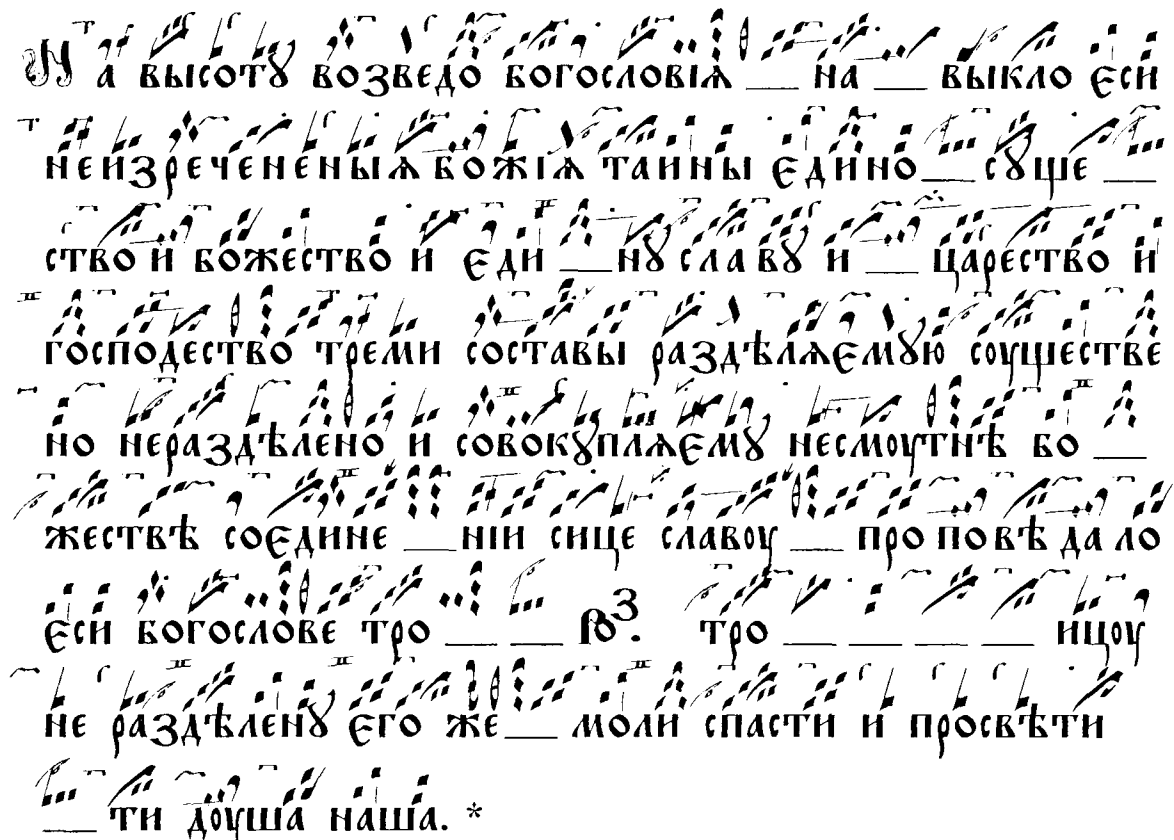 На высотꙋ возведо богословіѧ __ на __ выкло єси
неизречененыѧ божіѧ таины єдино__ сꙋще __
ство и божество и єди __нꙋ славꙋ и __ царество и
господество треми составы раздѣлѧємꙋю соуществе
но нераздѣлено и совокꙋплѧємꙋ несмоутнѣ бо __
жествѣ соєдине __ніи сице славоу __ проповѣдало
єси богослове тро __ __ ю҃з. тро __ __ __ __ ицоу
не раздѣленꙋ єго же__ моли спасти и просвѣти
__ ти доуша наша. *